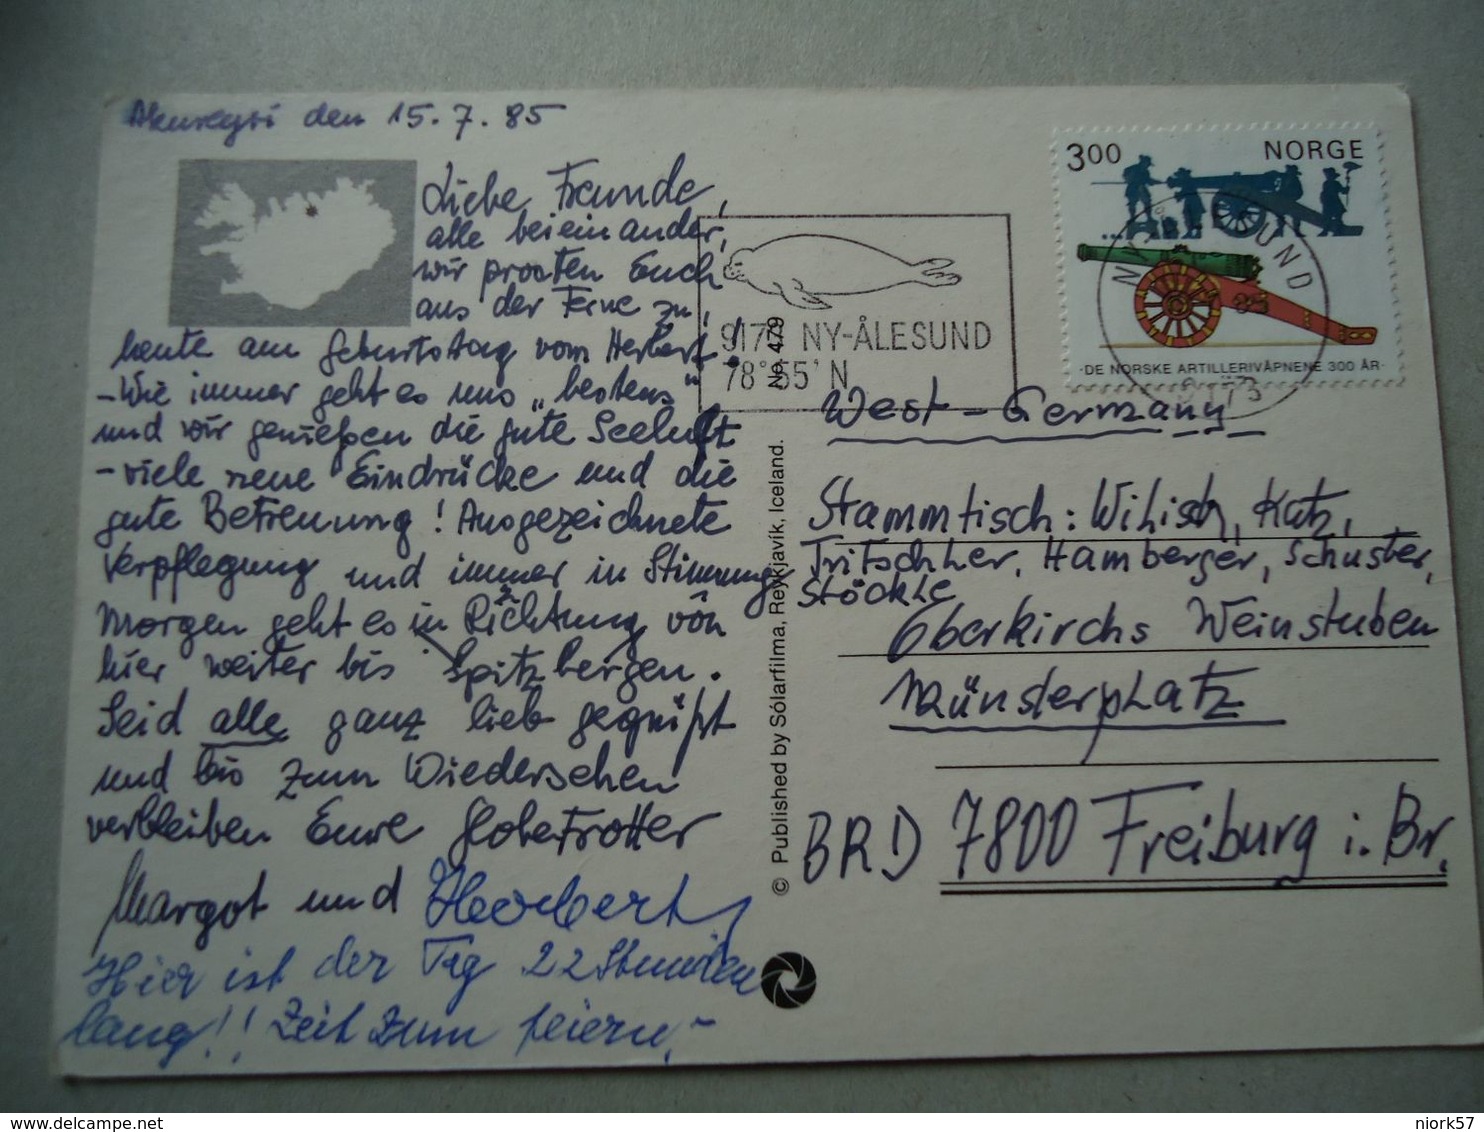 Akureyri den 15.7.85
Liebe Freunde,
alle beieinander,
wir prosten Euch
aus der Ferne zu,
heute am Geburtstag vom Herbert!
- Wie immer geht es uns „bestens"
und wir genießen die gute Seeluft
- viele neue Eindrücke und die
gute Betreuung! Ausgezeichnete
Verpflegung und immer in Stimmung
Morgen geht es in Richtung von
hier weiter bis Spitzbergen.
Seid alle ganz lieb gegrüßt
und bis zum Wiedersehen
verbleiben Eure Globetrotter
Margot und Herbert
Hier ist der Tag 22 Stunden
lang!! Zeit zum feiern,-
3.00 NORGE
·DE NORSKE ARTILLERIVÅPNENE 300 ÅR·
NY-ÅLESUND
85
9173
9173 NY-ÅLESUND
78°55' N
No. 479
© Published by Sólarfilma, Reykjavík, Iceland.
West-Germany
Stammtisch: Wilisch, Katz,
Tritschler, Hamberger, Schuster,
Stöckle
Oberkirchs Weinstuben
Münsterplatz
BRD 7800 Freiburg i. Br.
niork57